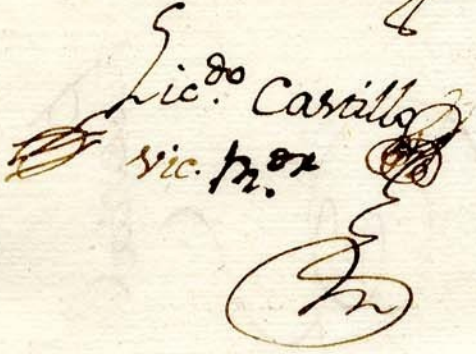 Lic.do Castillo
Vic. M.or